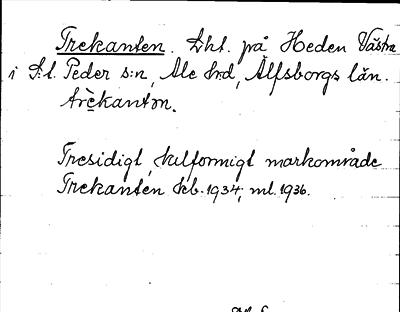 Trekanten. Lht. på Heden Västra
i S:t. Peder s:n, Ale hrd, Älfsborgs län.
Tresidigt, kilformigt markområde
Trekanten kb. 1934, ml. 1936.